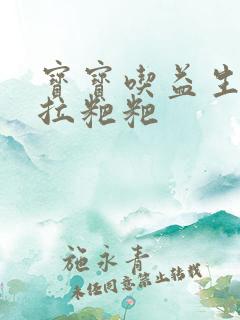 寶寶喫益生
拉粑粑
施永青
未經同意禁止轉載